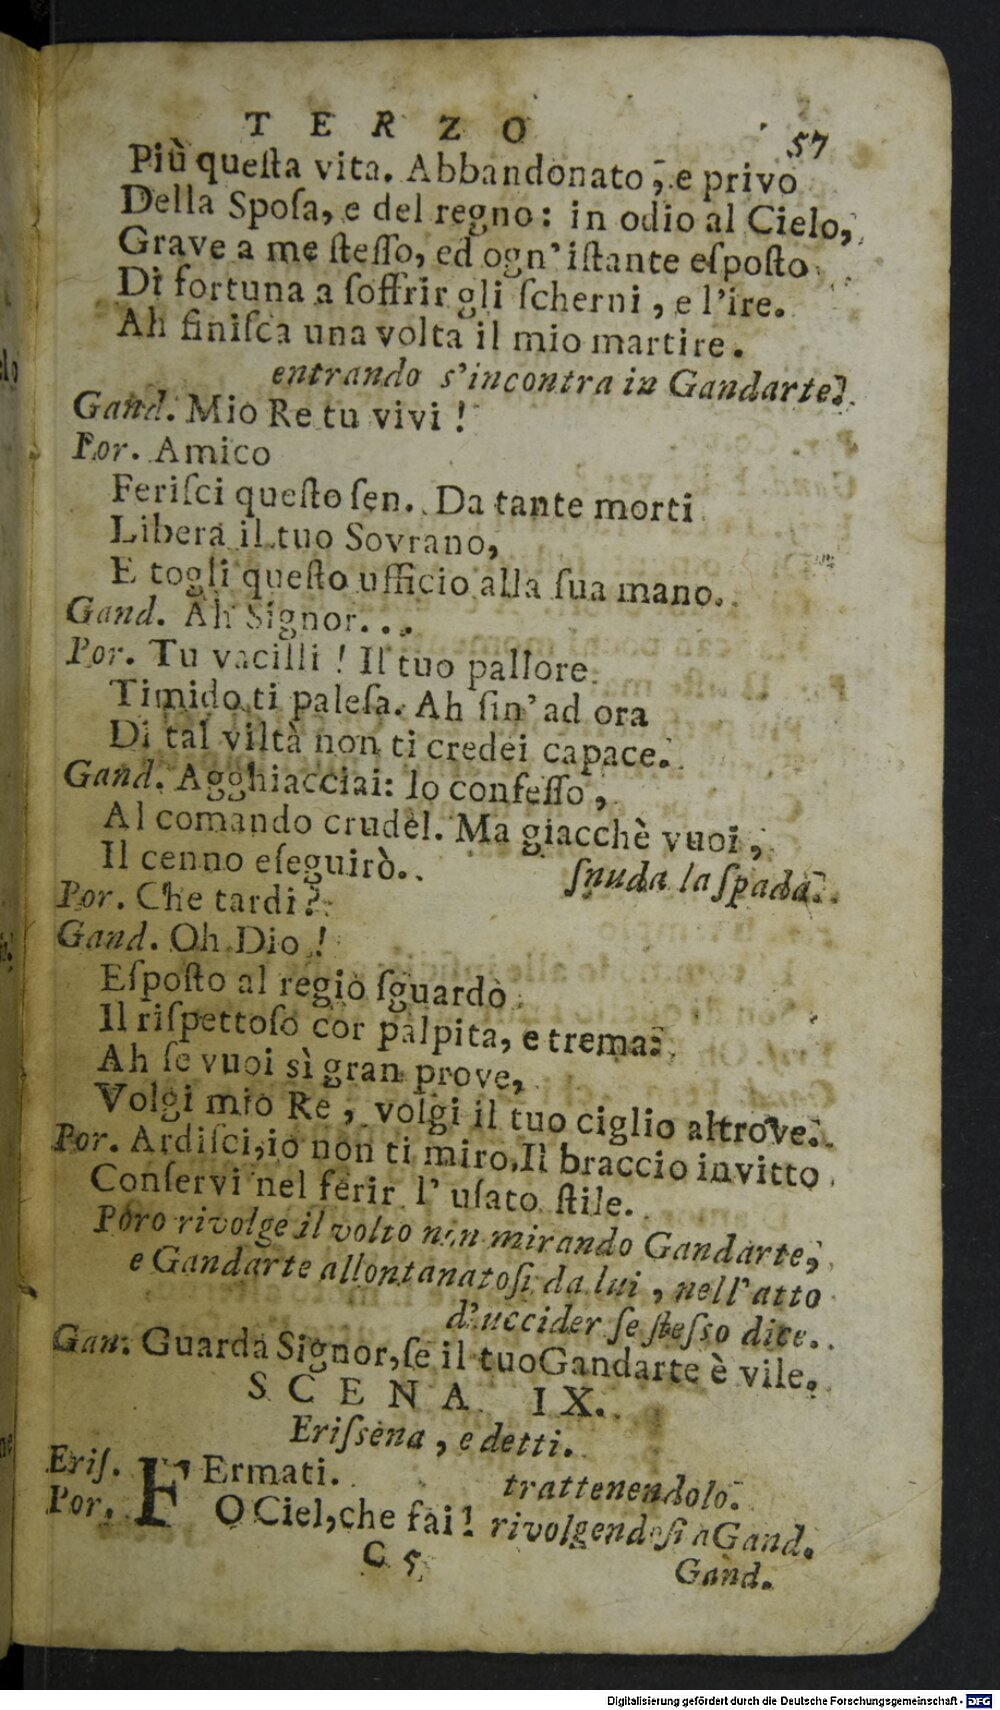 TERZO 57
Più queſta vita. Abbandonato, e privo
Della Spoſa, e del regno: in odio al Cielo,
Grave a me ſteſſo, ed ogn' iſtante eſpoſto
Di fortuna a ſoffrir gli ſcherni, e l'ire.
Ah finiſca una volta il mio martire.
entrando s'incontra in Gandarte.
Gand. Mio Re tu vivi!
Por. Amico
Feriſci queſto ſen. Da tante morti
Libera il tuo Sovrano,
E togli queſto ufficio alla ſua mano.
Gand. Ah Signor...
Por. Tu vacilli! Il tuo pallore
Timido ti paleſa. Ah ſin' ad ora
Di tal viltà non ti credei capace.
Gand. Agghiacciai: lo confeſſo,
Al comando crudel. Ma giacchè vuoi,
Il cenno eſeguirò. ſnuda la ſpada.
Por. Che tardi?
Gand. Oh Dio!
Eſpoſto al regio ſguardo
Il riſpettoſo cor palpita, e trema:
Ah ſe vuoi sì gran prove,
Volgi mio Re, volgi il tuo ciglio altrove.
Por. Ardiſci, io non ti miro. Il braccio invitto
Conſervi nel ferir l' uſato ſtile.
Poro rivolge il volto non mirando Gandarte,
e Gandarte allontanatoſi da lui, nell' atto
d'uccider ſe ſteſso dice.
Gan. Guarda Signor, ſe il tuo Gandarte è vile.
SCENA IX.
Eriſsena, e detti.
Eriſ. FErmati. trattenendolo.
Por. O Ciel, che fai! rivolgendoſi a Gand.
C 5 Gand.
Digitalisierung gefördert durch die Deutsche Forschungsgemeinschaft - DFG